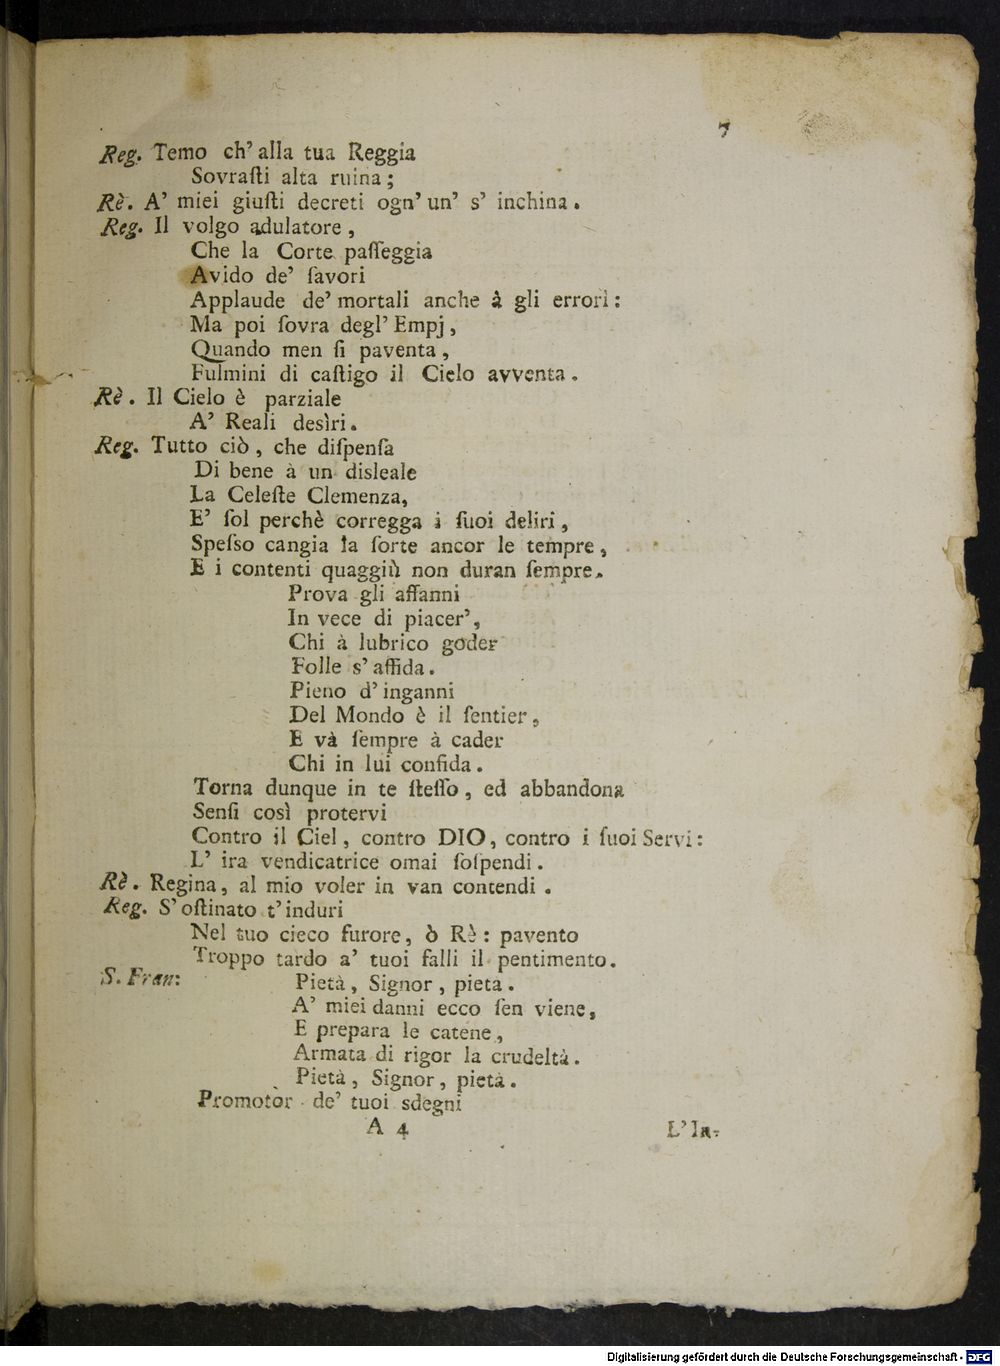 7
Reg. Temo ch' alla tua Reggia
Sovraſti alta ruina;
Rè. A' miei giuſti decreti ogn' un' s' inchina.
Reg. Il volgo adulatore,
Che la Corte paſſeggia
Avido de' favori
Applaude de' mortali anche à gli errori:
Ma poi ſovra degl' Empj,
Quando men ſi paventa,
Fulmini di caſtigo il Cielo avventa.
Rè. Il Cielo è parziale
A' Reali desìri.
Reg. Tutto ciò, che diſpenſa
Di bene à un disleale
La Celeſte Clemenza,
E' ſol perchè corregga i ſuoi deliri,
Speſso cangia la ſorte ancor le tempre,
E i contenti quaggiù non duran ſempre.
Prova gli affanni
In vece di piacer',
Chi à lubrico goder
Folle s' affida.
Pieno d' inganni
Del Mondo è il ſentier,
E và ſempre à cader
Chi in lui confida.
Torna dunque in te ſteſſo, ed abbandona
Senſi così protervi
Contro il Ciel, contro DIO, contro i ſuoi Servi:
L' ira vendicatrice omai ſoſpendi.
Rè. Regina, al mio voler in van contendi.
Reg. S' oſtinato t' induri
Nel tuo cieco furore, ò Rè: pavento
Troppo tardo a' tuoi falli il pentimento.
S. Fran: Pietà, Signor, pieta.
A' miei danni ecco ſen viene,
E prepara le catene,
Armata di rigor la crudeltà.
Pietà, Signor, pietà.
Promotor de' tuoi sdegni
A 4 L' In-
Digitalisierung gefördert durch die Deutsche Forschungsgemeinschaft - DFG